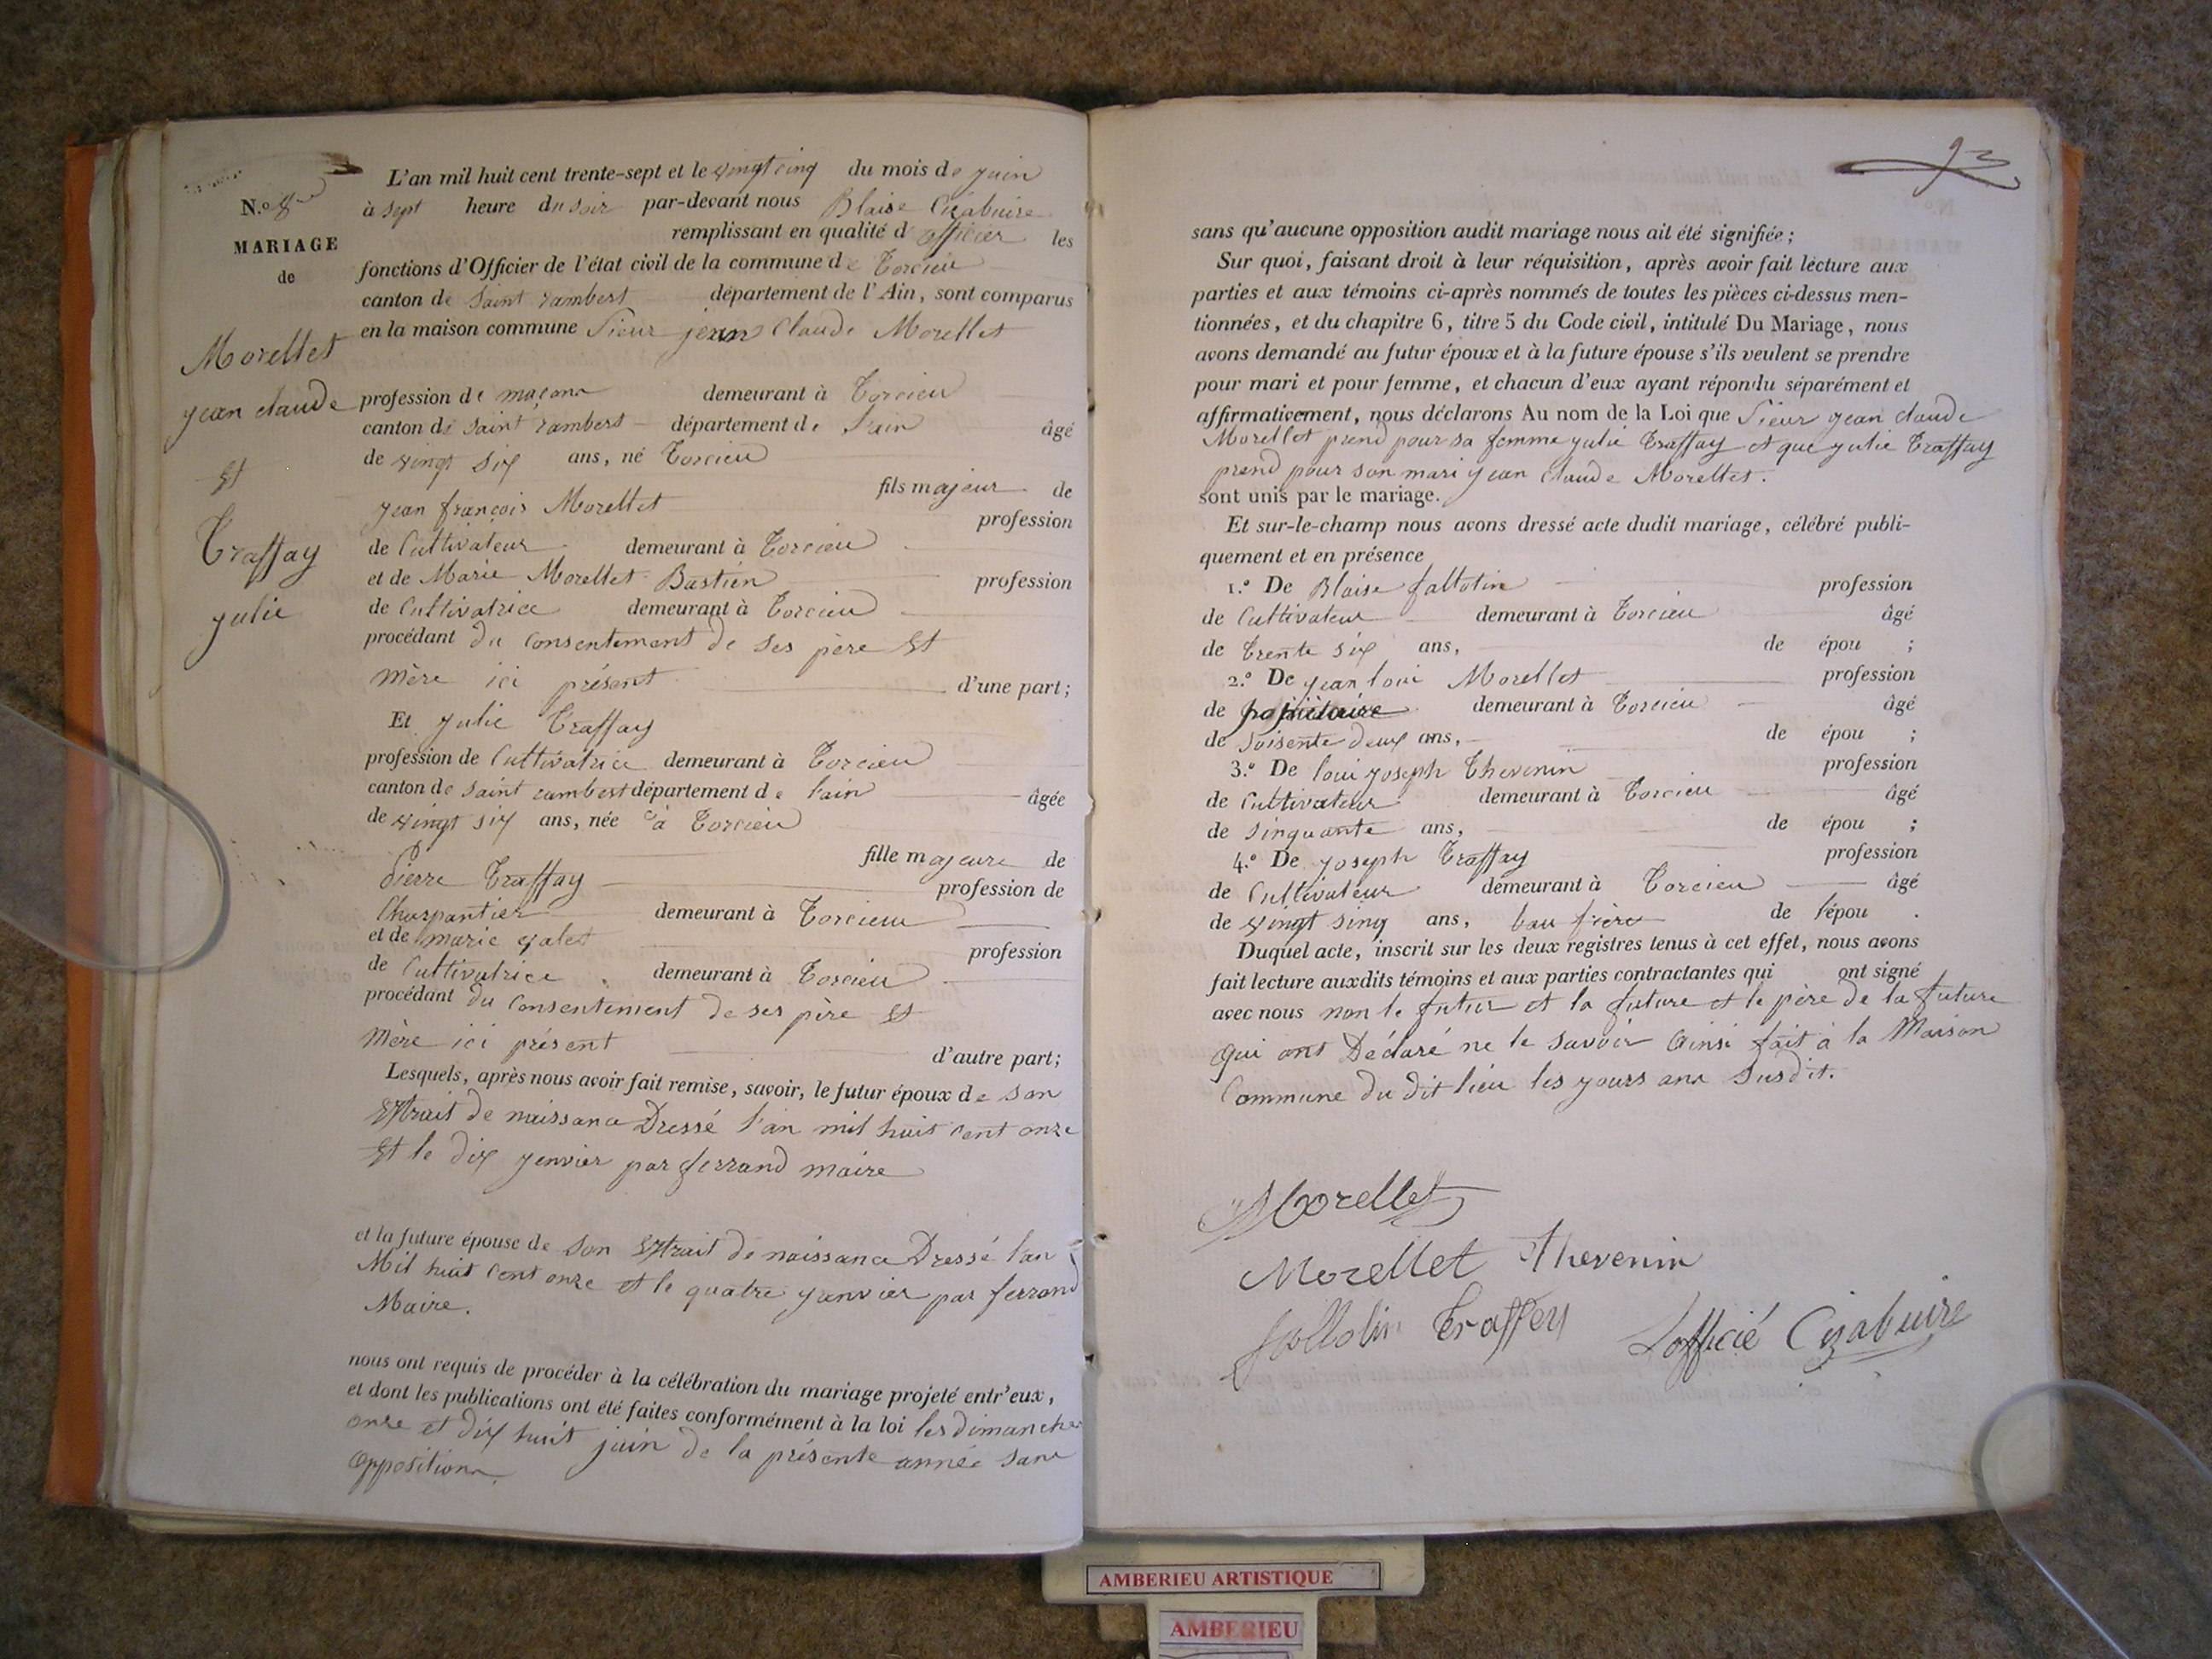 L'an mil huit cent trente-sept et le vingt cinq du mois de juin
N.º 8
à sept heure du soir par-devant nous Blaise Cizabuire
remplissant en qualité d'officier les
MARIAGE
de
fonctions d'Officier de l'état civil de la commune de Torcieu
canton de Saint rambert département de l'Ain, sont comparus
en la maison commune Sieur jean Claude Morellet
Morellet
jean claude
profession de maçonn demeurant à Torcieu
canton de Saint rambert département de l'ain âgé
de vingt six ans, né Torcieu
Et
fils majeur de
jean françois Morellet profession
Traffay
de Cultivateur demeurant à Torcieu
et de Marie Morellet Bastien profession
julie
de Cultivatrice demeurant à Torcieu
procédant du Consentement de ses père Et
mère ici présent d'une part;
Et julie Traffay
profession de Cultivatrice demeurant à Torcieu
canton de Saint rambert département de l'ain âgée
de vingt six ans, née à Torcieu
fille majeure de
Pierre Traffay profession de
Charpantier demeurant à Torcieu
et de marie profession
de Cultivatrice demeurant à Torcieu
procédant du Consentement de ses père Et
Mère ici présent d'autre part;
Lesquels, après nous avoir fait remise, savoir, le futur époux de son
Extrait de naissance Dressé l'an mil huit cent onze
Et le dix yenvier par ferrand maire
et la future épouse de son Extrait de naissance Dressé l'an
Mil huit Cent onze et le quatre yanvier par ferrand
Maire.
nous ont requis de procéder à la célébration du mariage projeté entr'eux,
et dont les publications ont été faites conformément à la loi les dimanche
onze et dix huit juin de la présente année sans
opposition
93
sans qu'aucune opposition audit mariage nous ait été signifiée;
Sur quoi, faisant droit à leur réquisition, après avoir fait lecture aux
parties et aux témoins ci-après nommés de toutes les pièces ci-dessus men-
tionnées, et du chapitre 6, titre 5 du Code civil, intitulé Du Mariage, nous
avons demandé au futur époux et à la future épouse s'ils veulent se prendre
pour mari et pour femme, et chacun d'eux ayant répondu séparément et
affirmativement, nous déclarons Au nom de la Loi que Sieur jean claude
Morellet prend pour sa femme julie Traffay et que julie Traffay
prend pour son mari jean Claude Morellet.
sont unis par le mariage.
Et sur-le-champ nous avons dressé acte dudit mariage, célébré publi-
quement et en présence
1.º De Blaise fallotin profession
de Cultivateur demeurant à Torcieu âgé
de trente six ans, de épou ;
2.º De jean loui Morellet profession
de demeurant à Torcieu âgé
de soisente deux ans, de épou ;
3.º De loui joseph Thevenin profession
de Cultivateur demeurant à Torcieu âgé
de sinquante ans, de épou ;
4.º De joseph Traffay profession
de Cultivateur demeurant à Torcieu âgé
de vingt sinq ans, bau frère de l'épou .
Duquel acte, inscrit sur les deux registres tenus à cet effet, nous avons
fait lecture auxdits témoins et aux parties contractantes qui ont signé
avec nous non le futur et la future et le père de la future
qui ont Déclaré ne le savoir Ainsi fait à la Maison
Commune du dit lieu les yours ans Susdit.
Morellet
Morellet Thevenin
fallotin Traffey Lofficié Cizabuire
AMBERIEU ARTISTIQUE
AMBERIEU